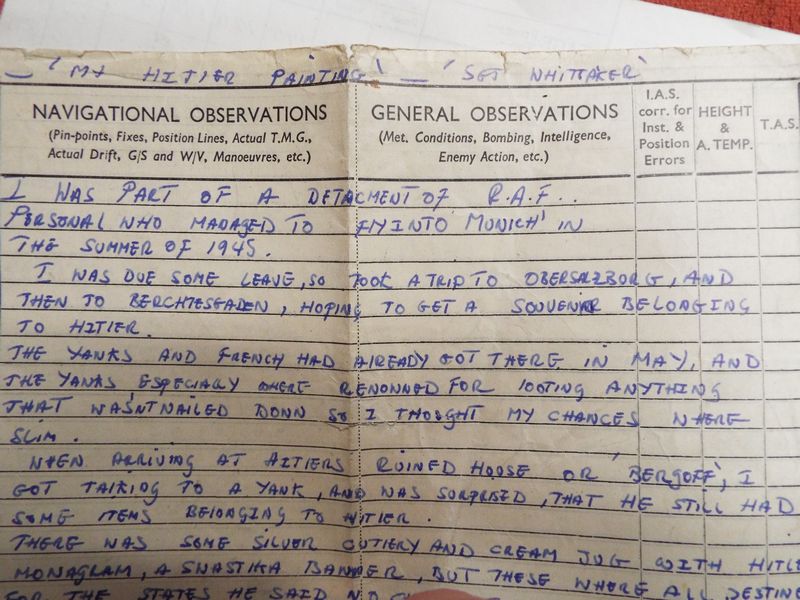 — 'MY HITLER PAINTING' — 'SGT WHITTAKER'
NAVIGATIONAL OBSERVATIONS
(Pin-points, Fixes, Position Lines, Actual T.M.G.,
Actual Drift, G/S and W/V, Manoeuvres, etc.)
GENERAL OBSERVATIONS
(Met. Conditions, Bombing, Intelligence,
Enemy Action, etc.)
I.A.S.
corr. for
Inst. &
Position
Errors
HEIGHT
&
A. TEMP.
T.A.S.
I WAS PART OF A DETACMENT OF R.A.F..
PERSONAL WHO MANAGED TO FLY INTO 'MUNICH' IN
THE SUMMER OF 1945.
I WAS DUE SOME LEAVE, SO TOOK A TRIP TO OBERSALZBORG, AND
THEN TO BERCHTESGADEN, HOPING TO GET A SOUVENIR BELONGING
TO HITLER.
THE YANKS AND FRENCH HAD ALREADY GOT THERE IN MAY, AND
THE YANKS ESPECIALY WHERE RENONNED FOR LOOTING ANYTHING
THAT WASN'T NAILED DONN SO I THOUGHT MY CHANCES WHERE
SLIM.
WHEN ARRIVING AT HITLERS RUINED HOUSE OR 'BERGOFF', I
GOT TALKING TO A YANK, AND WAS SURPRISED, THAT HE STILL HAD
SOME ITEMS BELONGING TO HITLER.
THERE WAS SOME SILVER CUTLERY AND CREAM JUG WITH HITLE
MONAGRAM, A SWASTIKA BANNER, BUT THESE WHERE ALL DESTINE
FOR THE STATES HE SAID